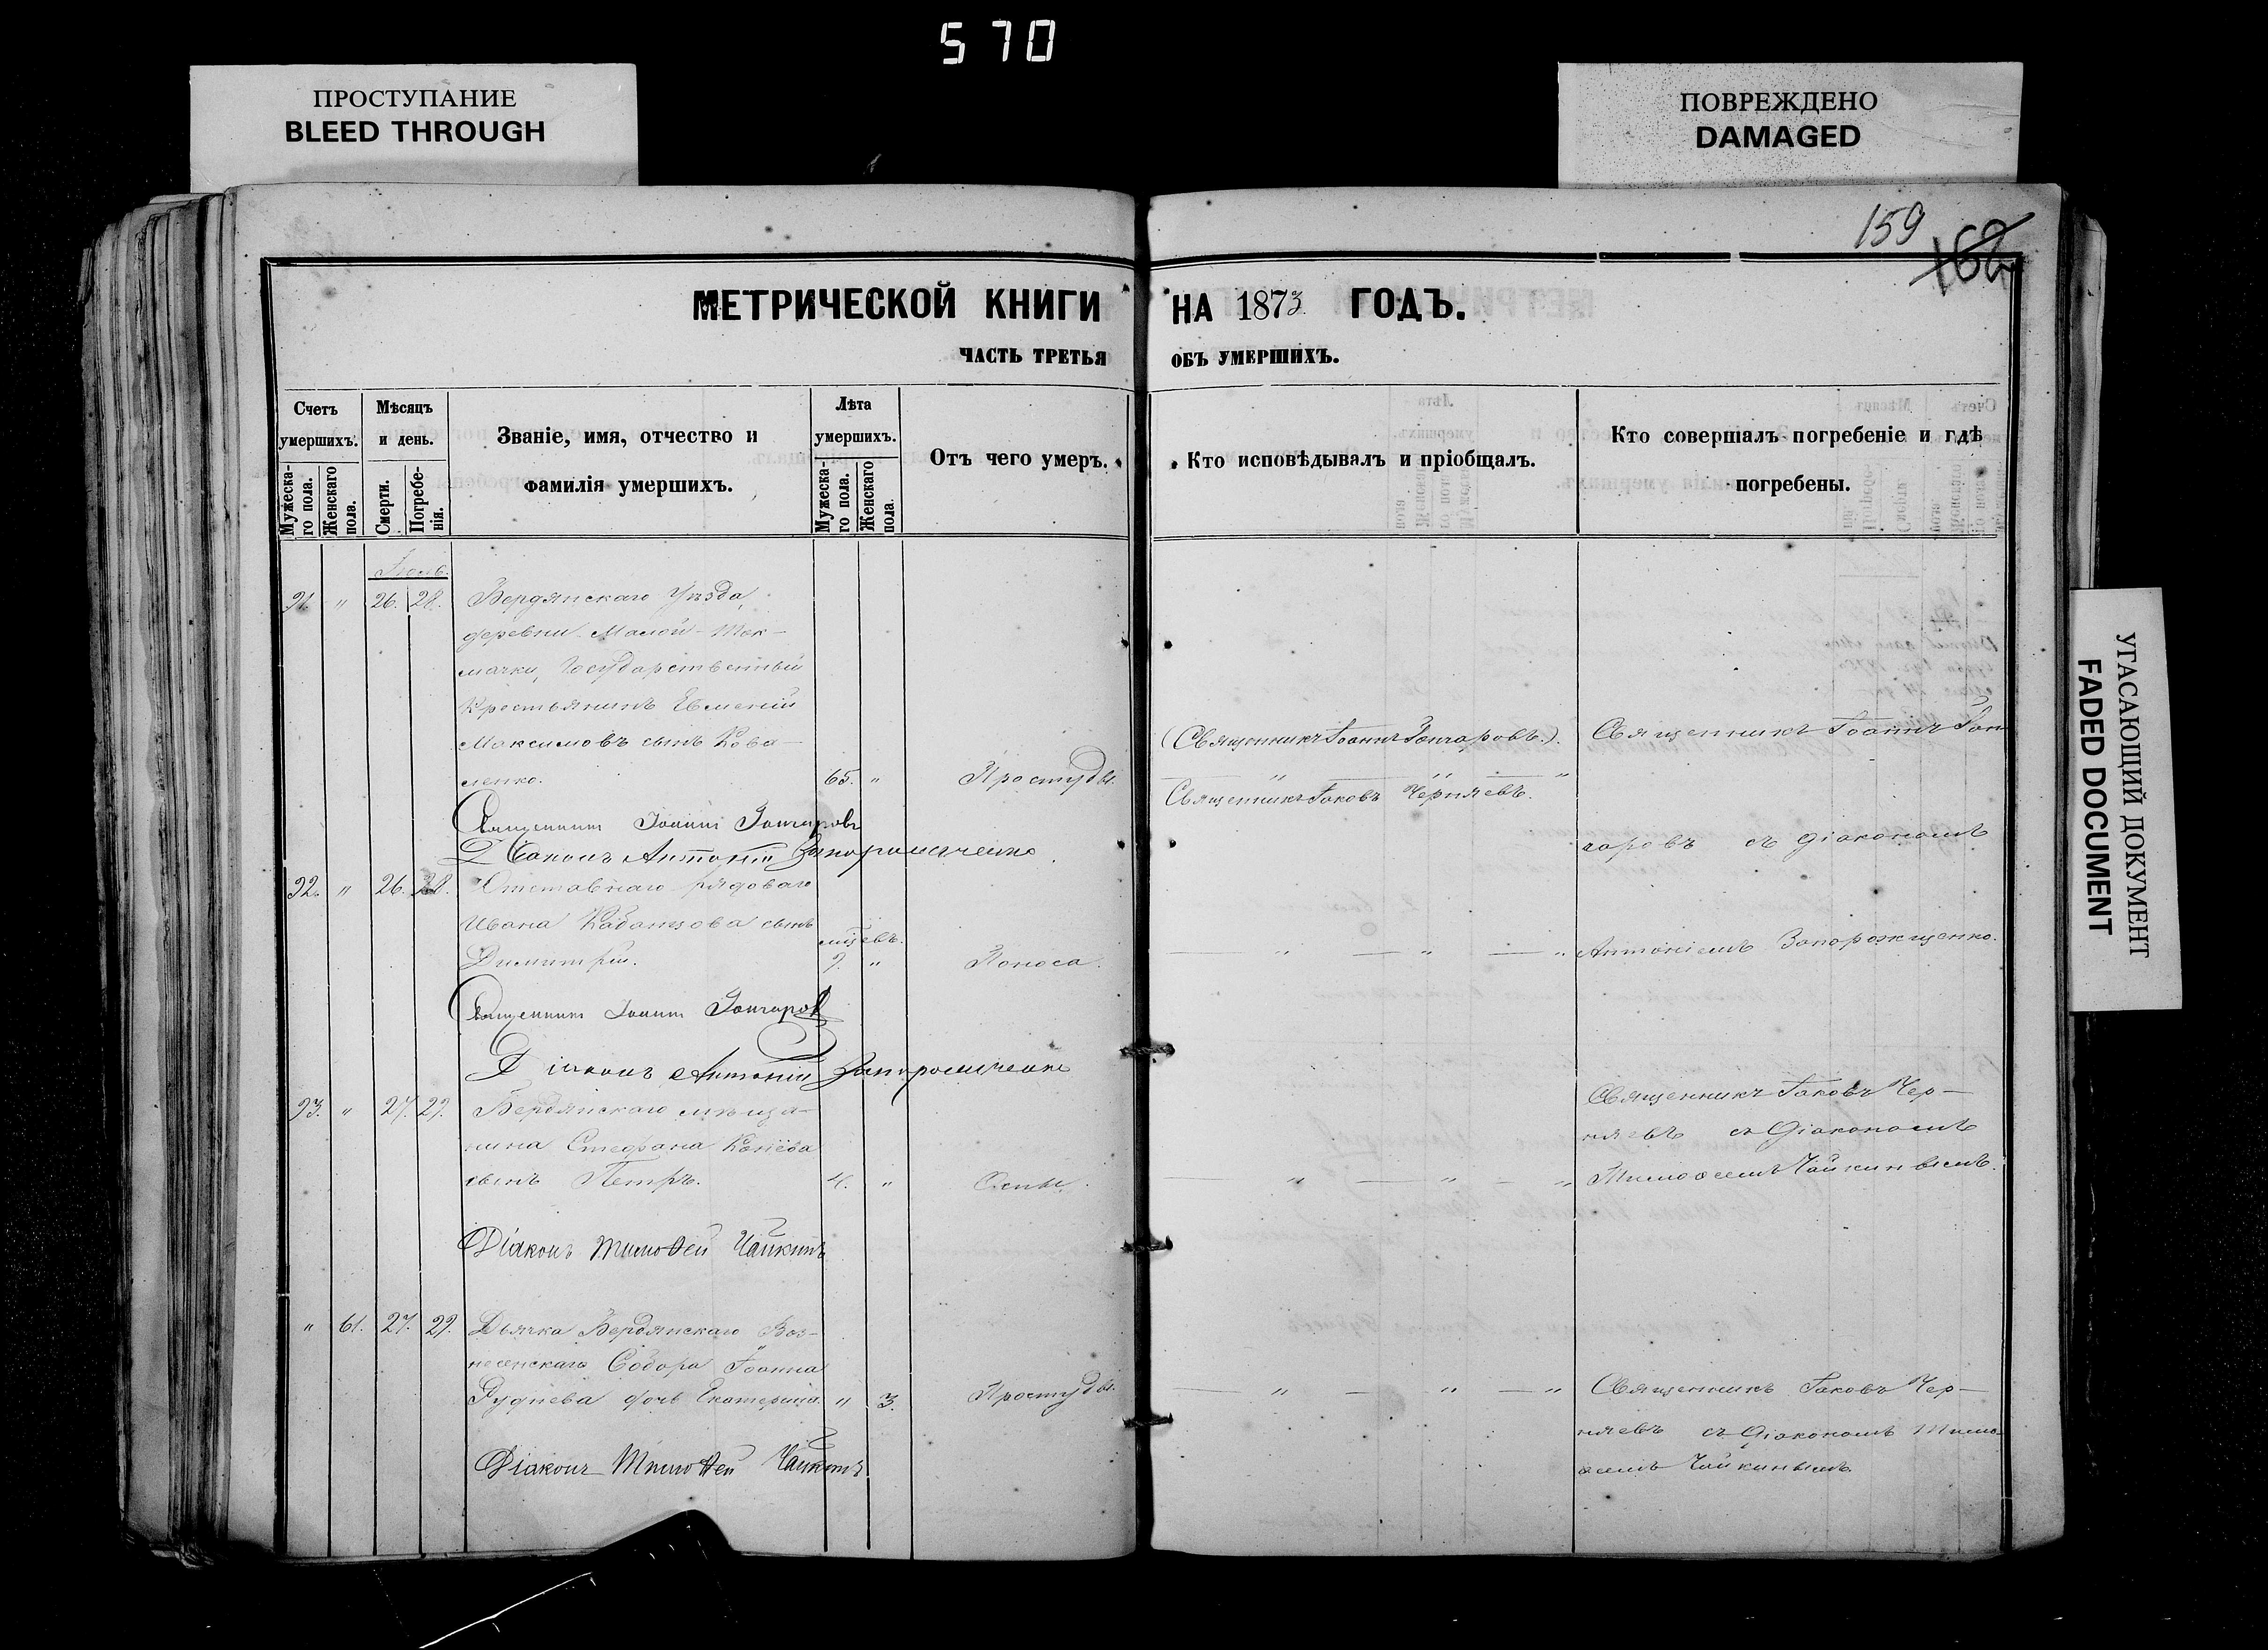 570
ПРОСТУПАНИЕ
BLEED THROUGH
ПОВРЕЖДЕНО
DAMAGED
159
162
МЕТРИЧЕСКОЙ КНИГИ НА 1873 ГОДЪ.
ЧАСТЬ ТРЕТЬЯ ОБЪ УМЕРШИХЪ.
Счетъ умершихъ.
Мужеска-го пола.
Женскаго пола.
Мѣсяцъ и день.
Смерти.
Погребе-нія.
Званіе, имя, отчество и
фамилія умершихъ.
Лѣта умершихъ.
Мужеска-го пола.
Женскаго пола.
Отъ чего умеръ.
Кто исповѣдывалъ и пріобщалъ.
Кто совершалъ погребеніе и гдѣ
погребены.
Іюль.
91. " 26. 28. Бердянскаго Уѣзда,
деревни Малой-Ток-
мачки, Государственный
Крестьянинъ Евменій
Максимовъ сынъ Кова-
ленко. 65. " Простуды.
(Священникъ Іоаннъ Гончаровъ.).
Священникъ Іаковъ Черняевъ.
Священникъ Іоаннъ Гон
чаровъ съ діакономъ
Антоніемъ Запорожченко.
Священникъ Іоаннъ Гончаровъ
Діаконъ Антоній Запорожченко
92. " 26. 28. Отставнаго рядоваго
Ивана Кабанцова сынъ
Димитрій. мѣсяцевъ. 9. " Поноса.
Священникъ Іоаннъ Гончаровъ
Діаконъ Антоній Запорожченко
93. " 27. 29. Бердянскаго мѣща-
нина Стефана Конѣва
сынъ Петръ. 4. " Оспы.
Священникъ Іаковъ Чер-
няевъ съ Діакономъ
Тимоѳеемъ Чайкинымъ.
Діаконъ Тимоѳей Чайкинъ
" 61. 27. 29. Дьячка Бердянскаго Воз-
несенскаго Собора Іоанна
Руднева дочь Екатерина. " 3. Простуды.
Священникъ Іаковъ Чер-
няевъ съ Діакономъ Тимо
ѳеемъ Чайкинымъ.
Діаконъ Тимоѳей Чайкинъ
УГАСАЮЩИЙ ДОКУМЕНТ
FADED DOCUMENT